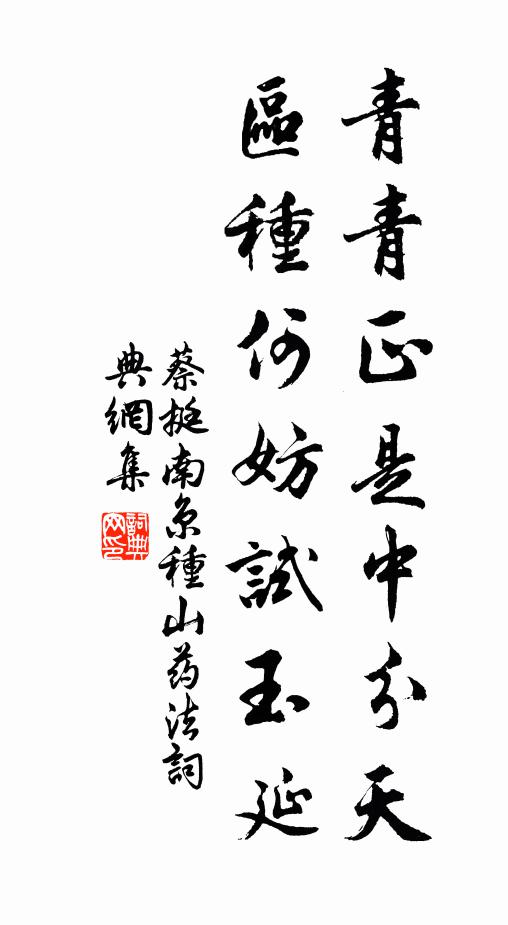 青青正是中分天
區種何妨試玉延
蔡挺南京種山药法詞
典網集
詞典网印